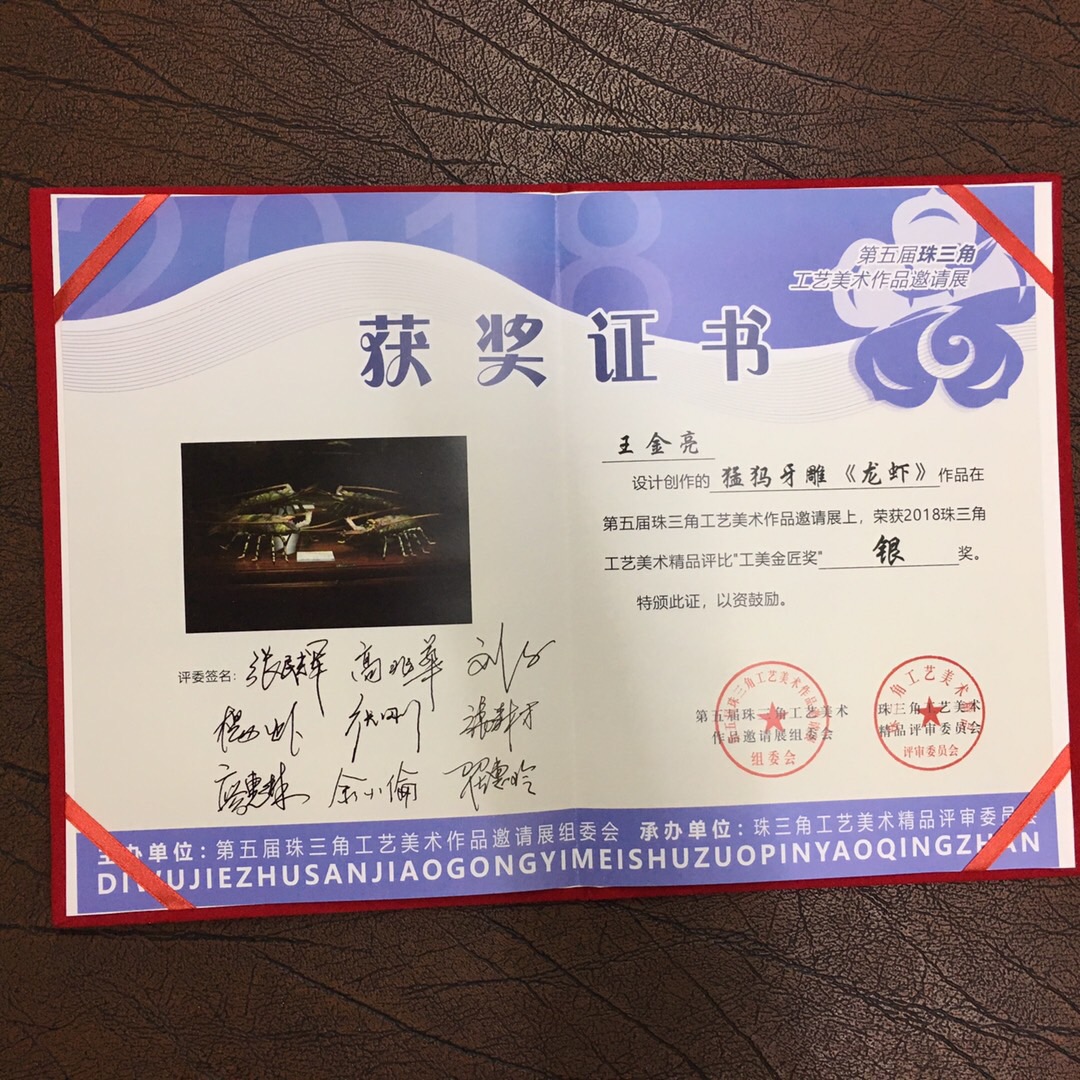 2018
第五届珠三角
工艺美术作品邀请展
获奖证书
王金亮
设计创作的猛犸牙雕《龙虾》作品在
第五届珠三角工艺美术作品邀请展上，荣获2018珠三角
工艺美术精品评比"工美金匠奖"银奖。
特颁此证，以资鼓励。
评委签名：
第五届珠三角工艺美术
作品邀请展组委会
组委会
珠三角工艺美术
精品评审委员会
评审委员会
主办单位：第五届珠三角工艺美术作品邀请展组委会 承办单位：珠三角工艺美术精品评审委员会
DIWUJIEZHUSANJIAOGONGYIMEISHUZUOPINYAOQINGZHAN